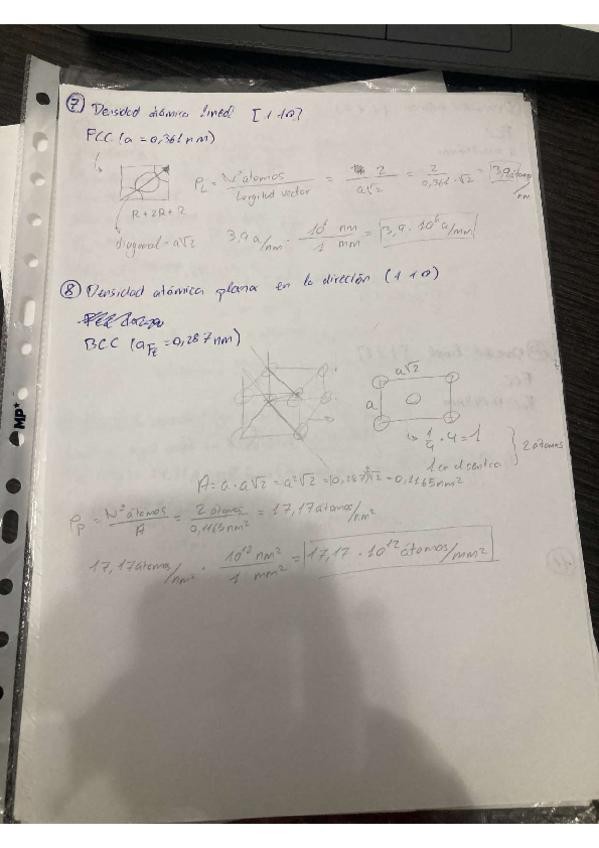 ⑦ Densidad atómica lineal [1 1 0]
FCC (a = 0,361 nm)
ρL = Nº átomos / Longitud vector = 2 / a√2 = 2 / 0,361 · √2 = 3,92 átomos / nm
R + 2R + R
diagonal = a√2
3,9 a/nm · 10⁶ nm / 1 mm = 3,9 · 10⁶ a/mm
⑧ Densidad atómica plana en la direción (1 1 0)
BCC (aFe = 0,287 nm)
a√2
a
↳ 1/4 · 4 = 1
1 en el centro
} 2 átomos
A = a · a√2 = a²√2 = (0,287)²√2 = 0,1165 nm²
ρP = Nº átomos / A = 2 átomos / 0,1165 nm² = 17,17 átomos/nm²
17,17 átomos/nm² · 10¹² nm² / 1 mm² = 17,17 · 10¹² átomos/mm²
MP